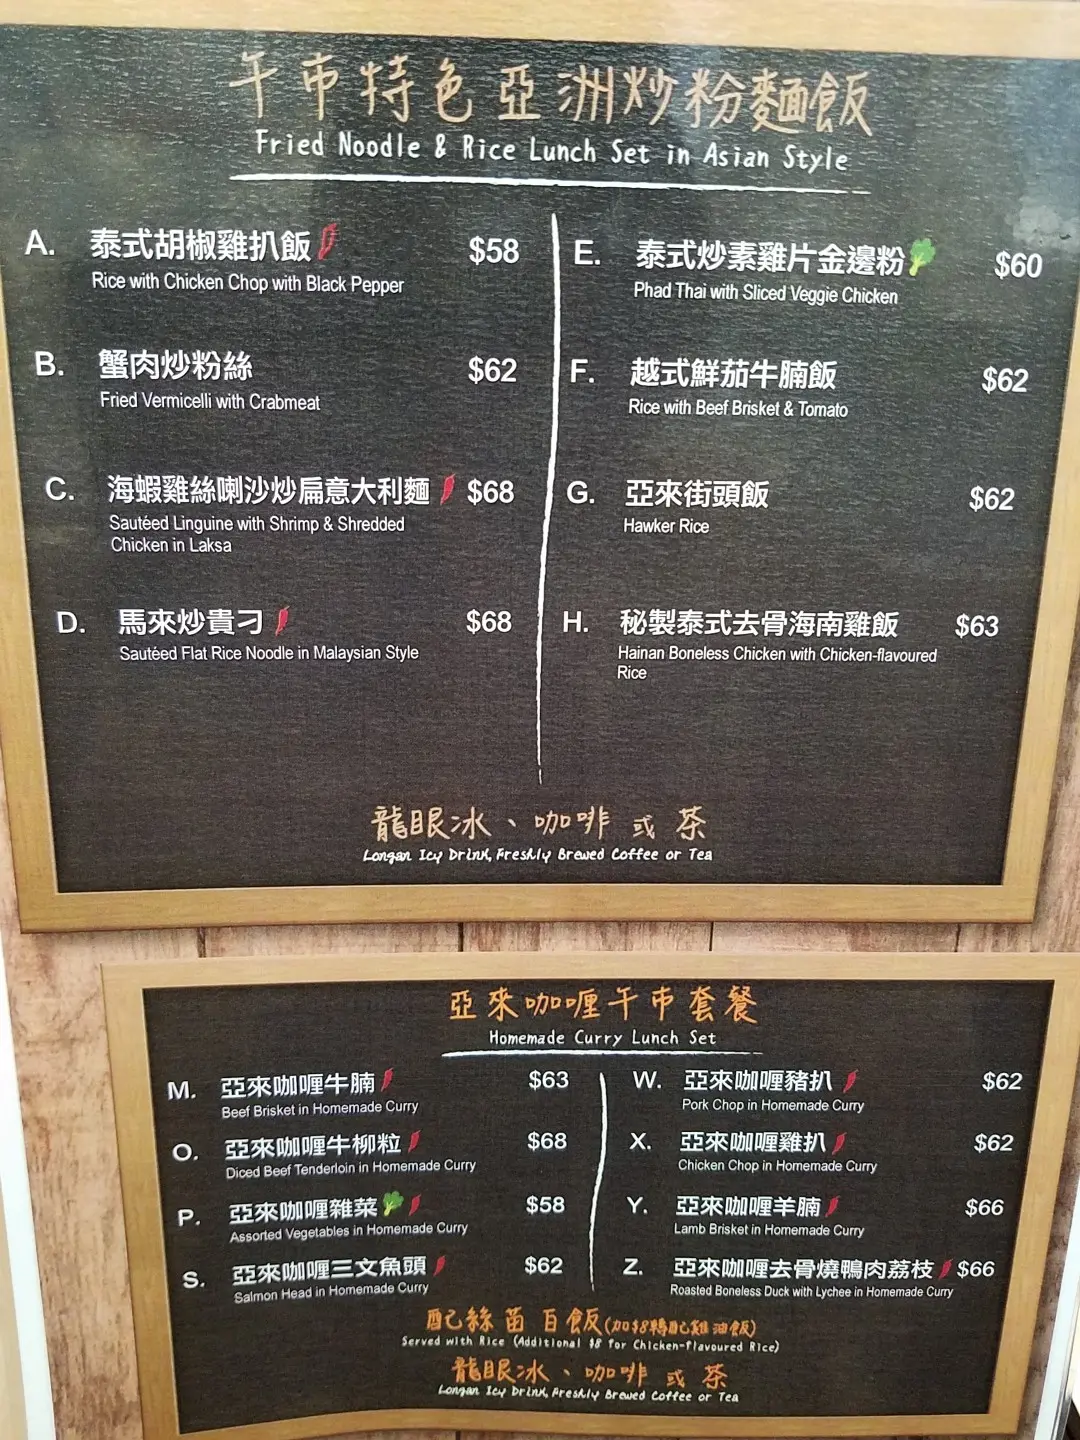 午市特色亞洲炒粉麵飯
Fried Noodle & Rice Lunch Set in Asian Style
A. 泰式胡椒雞扒飯 $58
Rice with Chicken Chop with Black Pepper
B. 蟹肉炒粉絲 $62
Fried Vermicelli with Crabmeat
C. 海蝦雞絲喇沙炒扁意大利麵 $68
Sautéed Linguine with Shrimp & Shredded
Chicken in Laksa
D. 馬來炒貴刁 $68
Sautéed Flat Rice Noodle in Malaysian Style
E. 泰式炒素雞片金邊粉 $60
Phad Thai with Sliced Veggie Chicken
F. 越式鮮茄牛腩飯 $62
Rice with Beef Brisket & Tomato
G. 亞來街頭飯 $62
Hawker Rice
H. 秘製泰式去骨海南雞飯 $63
Hainan Boneless Chicken with Chicken-flavoured
Rice
龍眼冰、咖啡 或 茶
Longan Icy Drink, Freshly Brewed Coffee or Tea
亞來咖喱午市套餐
Homemade Curry Lunch Set
M. 亞來咖喱牛腩 $63
Beef Brisket in Homemade Curry
O. 亞來咖喱牛柳粒 $68
Diced Beef Tenderloin in Homemade Curry
P. 亞來咖喱雜菜 $58
Assorted Vegetables in Homemade Curry
S. 亞來咖喱三文魚頭 $62
Salmon Head in Homemade Curry
W. 亞來咖喱豬扒 $62
Pork Chop in Homemade Curry
X. 亞來咖喱雞扒 $62
Chicken Chop in Homemade Curry
Y. 亞來咖喱羊腩 $66
Lamb Brisket in Homemade Curry
Z. 亞來咖喱去骨燒鴨肉荔枝 $66
Roasted Boneless Duck with Lychee in Homemade Curry
配絲苗白飯(加$8轉配雞油飯)
Served with Rice (Additional $8 for Chicken-flavoured Rice)
龍眼冰、咖啡 或 茶
Longan Icy Drink, Freshly Brewed Coffee or Tea